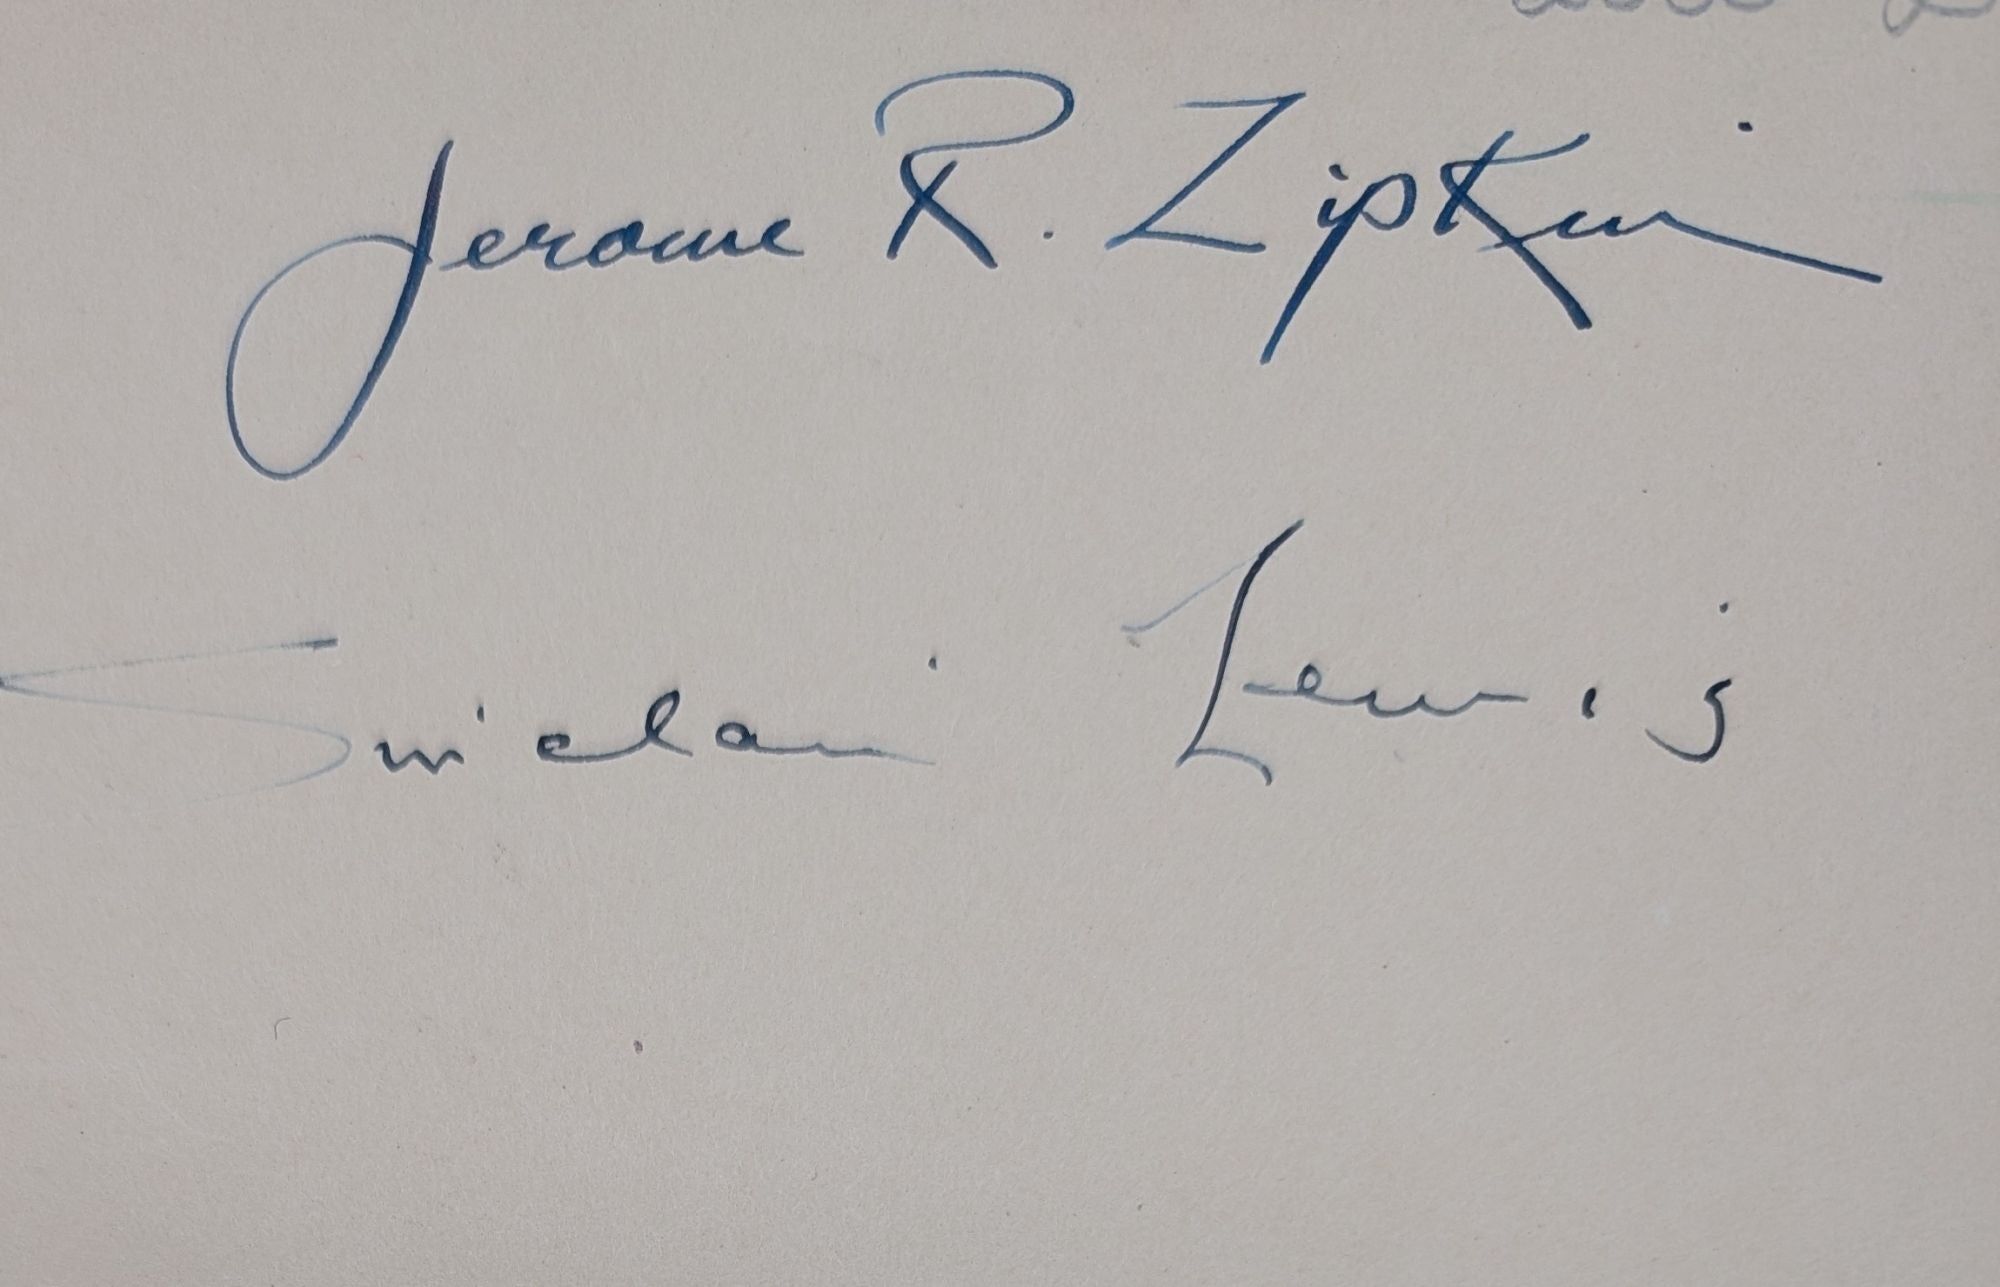 Jerome R. Zipkin
Sinclair Lewis